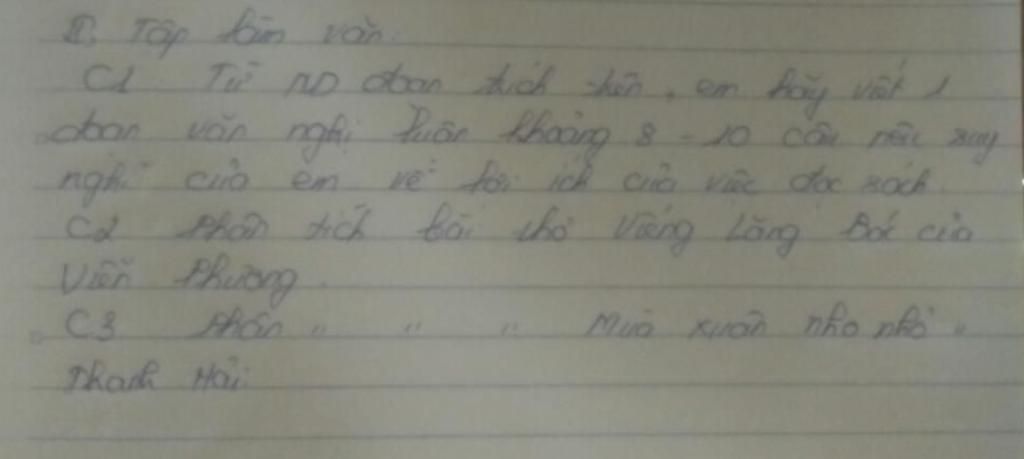 II. Tập làm văn:
C1 Từ ND đoạn trích trên, em hãy viết 1
đoạn văn nghị luận khoảng 8 - 10 câu nêu suy
nghĩ của em về lợi ích của việc đọc sách.
C2 Phân tích bài thơ Viếng Lăng Bác của
Viễn Phương.
C3 Phân " " " Mùa xuân nho nhỏ "
Thanh Hải.